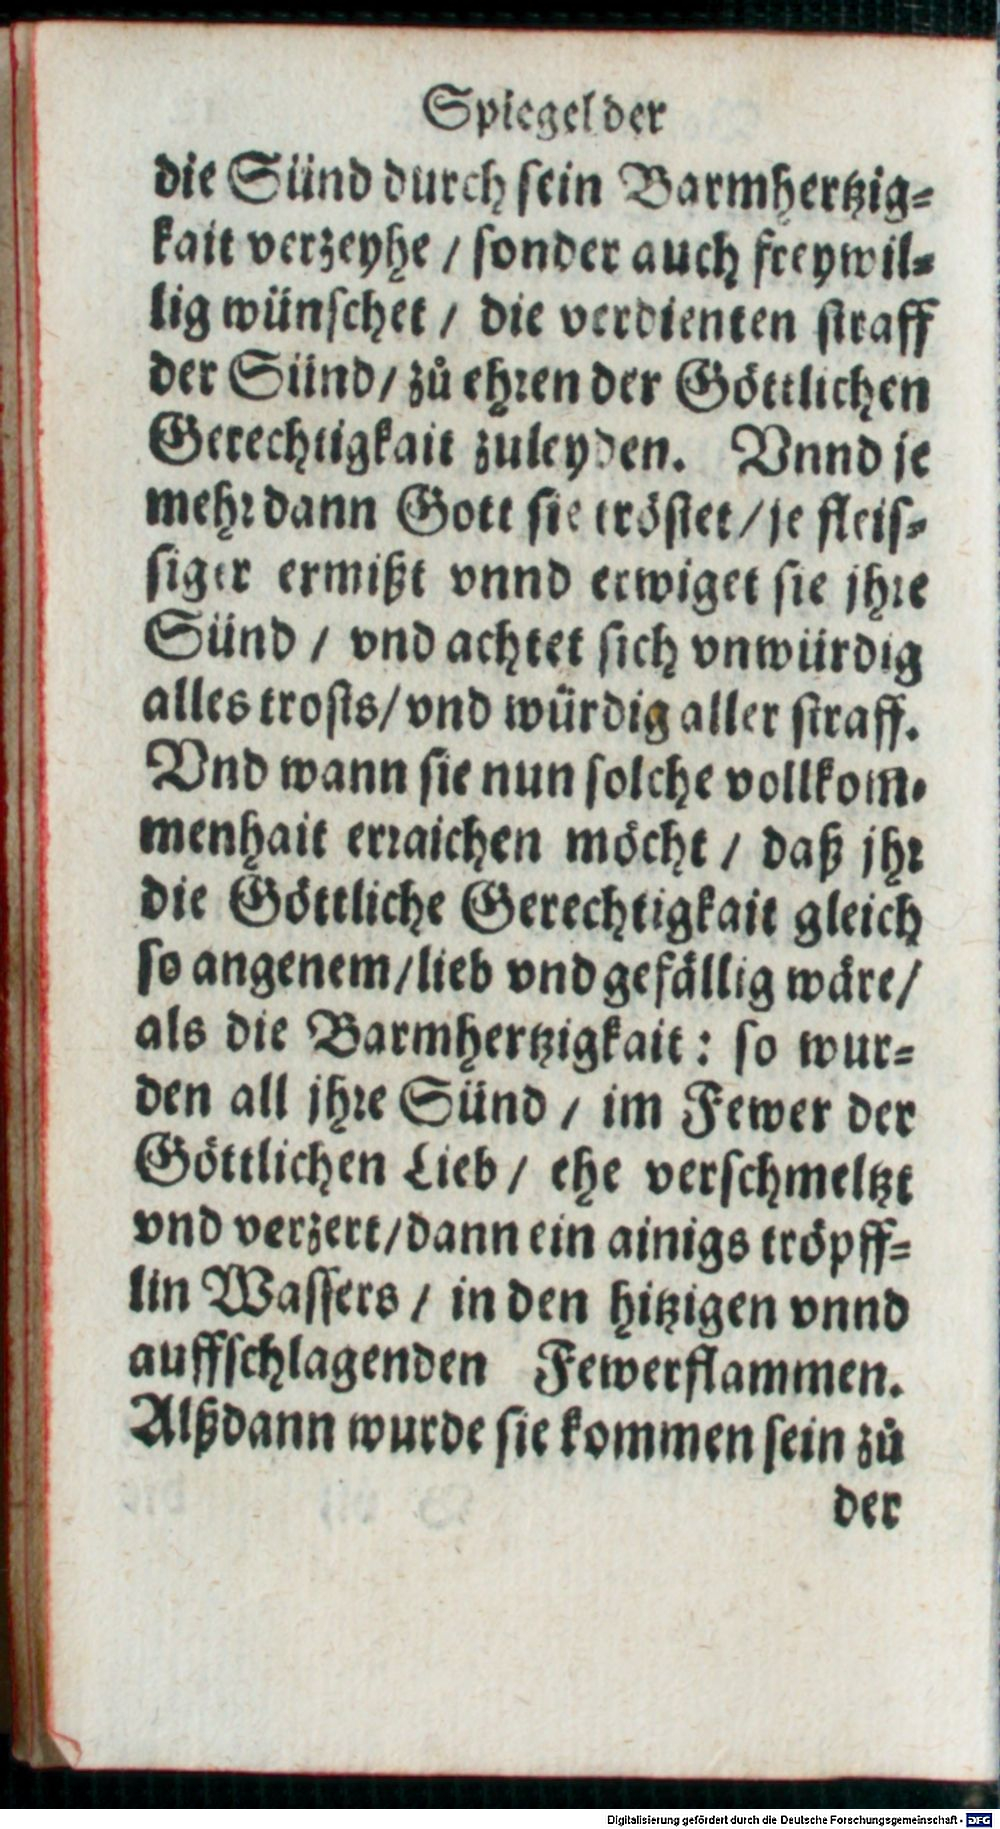 Spiegel der
die Sünd durch sein Barmhertzig-
kait verzeyhe / sonder auch freywil-
lig wünschet / die verdienten straff
der Sünd / zů ehren der Göttlichen
Gerechtigkait zuleyden. Vnnd je
mehr dann Gott sie tröstet / je fleis-
siger ermißt vnnd erwiget sie jhre
Sünd / vnd achtet sich vnwürdig
alles trosts / vnd würdig aller straff.
Vnd wann sie nun solche vollkom-
menhait erraichen möcht / daß jhr
die Göttliche Gerechtigkait gleich
so angenem / lieb vnd gefällig wäre /
als die Barmhertzigkait : so wur-
den all jhre Sünd / im Fewer der
Göttlichen Lieb / ehe verschmeltzt
vnd verzert / dann ein ainigs tröpff-
lin Wassers / in den hitzigen vnnd
auffschlagenden Fewerflammen.
Alßdann wurde sie kommen sein zů
der
Digitalisierung gefördert durch die Deutsche Forschungsgemeinschaft - DFG